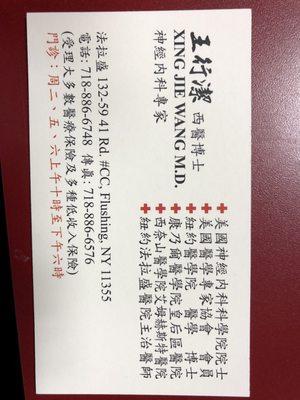 王行潔 西醫博士
XING JIE WANG M.D.
神經內科專家
✚美國神經內科科學院院士
✚美國醫學專家協會 會員
✚紐約醫學院 醫學 博士
✚康乃爾醫學院皇后區醫院
✚西奈山醫學院艾姆赫斯特醫院
✚紐約法拉盛醫院主治醫師
法拉盛 132-59 41 Rd. #CC, Flushing, NY 11355
電話: 718-886-6748 傳真: 718-886-6576
(受理大多數醫療保險及多種低收入保險)
門診:周二、五、六上午十時至下午六時